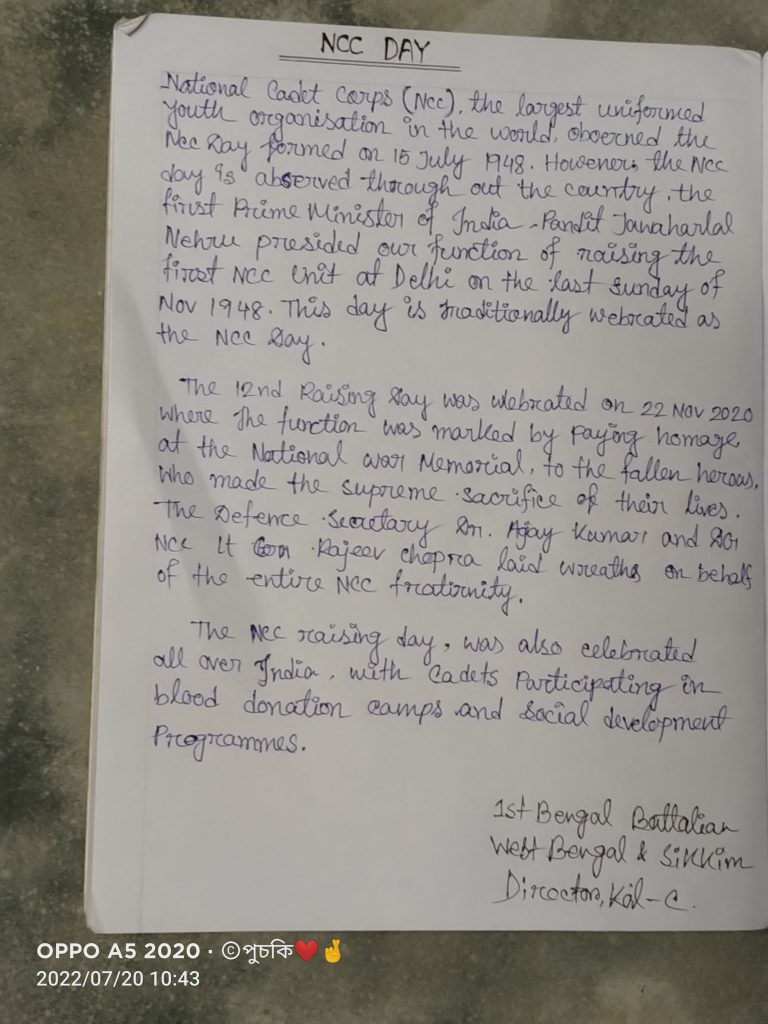 NCC DAY
National Cadet Corps (Ncc), the largest uniformed
Youth organisation in the world, oboerned the
Ncc Day formed on 15 July 1948. Howener, the NCC
day is observed through out the country. the
first Prime Minister of India - Pandit Jawaharlal
Nehru presided our function of raising the
first NCC Unit at Delhi on the last sunday of
Nov 1948. This day is traditionally webrated as
the NCC Day.
The 12nd Raising Day was webrated on 22 NOV 2020
where The function was marked by paying homage,
at the National war Memorial, to the fallen herous,
who made the supreme sacrifice of their Lives.
The Defence Secretary Dr. Ajay Kumar and DG
NCC Lt Gen Rajeev chopra laid wreaths on behalf
of the entire NCC fratirnity.
The Ncc raising day, was also celebrated
all over India, with Cadets Participating in
blood donation camps and social development
Programmes.
1st Bengal Battalian
West Bengal & SiKKim
Dircector, Kol-C.
OPPO A5 2020 · ©পুচকি❤️🤞
2022/07/20 10:43